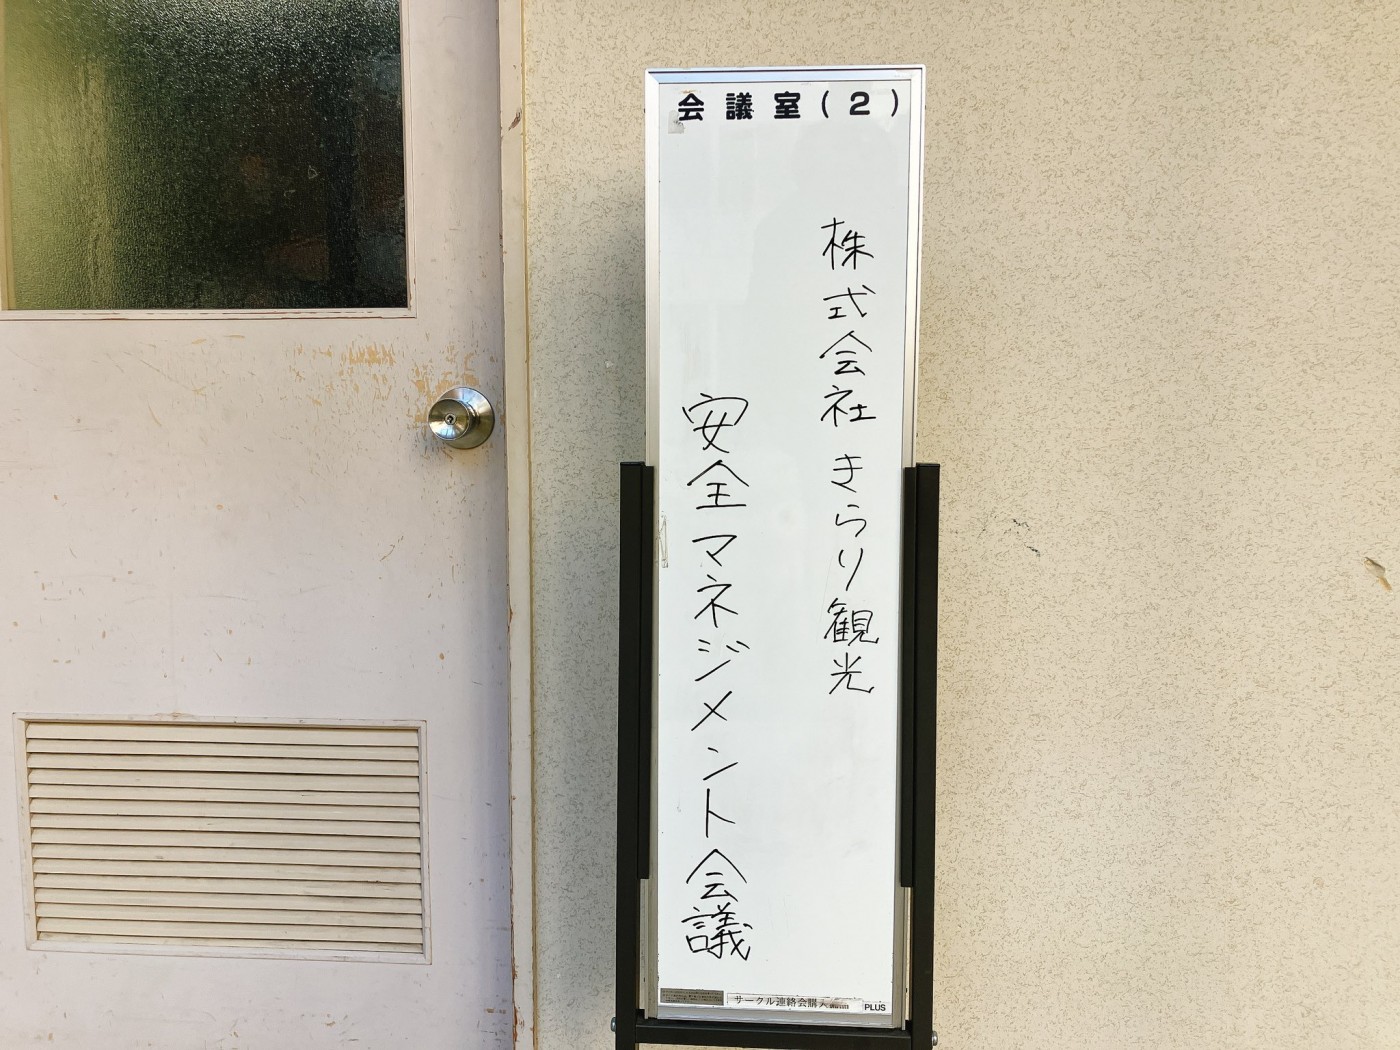 会議室(2)
株式会社きらり観光
安全マネジメント会議
サークル連絡会購入
PLUS